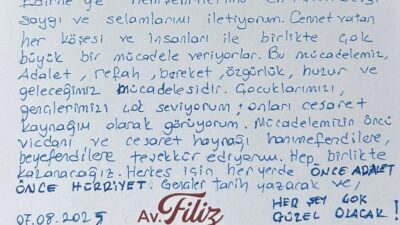 saygı ve selamlarımı iletiyorum. Cennet vatan
her köşesi ve insanları ile birlikte çok
büyük bir mücadele veriyorlar. Bu mücadelemiz,
Adalet, refah, bereket, özgürlük, huzur ve
geleceğimiz mücadelesidir. Çocuklarımızı,
gençlerimizi çok seviyorum; onları cesaret
kaynağım olarak görüyorum. Mücadelemizin öncü
vicdani ve cesaret kaynağı hanımefendilere,
beyefendilere teşekkür ediyorum. Hep birlikte
kazanacağız. Herkes için her yerde ÖNCE ADALET
ÖNCE HÜRRİYET. Gençler tarih yazarak ve,
HER ŞEY ÇOK
GÜZEL OLACAK!
07.08.2025
Av. Filiz